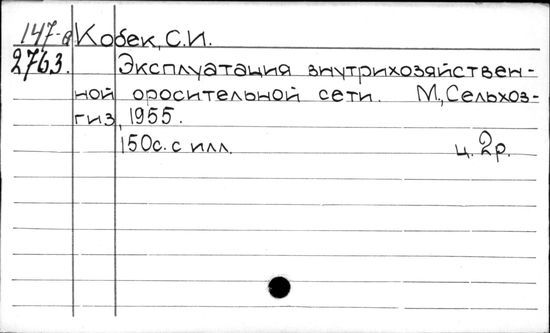 147-а Кобек, С.И.
2763.
Эксплуатация внутрихозяйствен-
ной оросительной сети. М., Сельхоз-
гиз, 1955.
150с. с илл. ц. 2р.